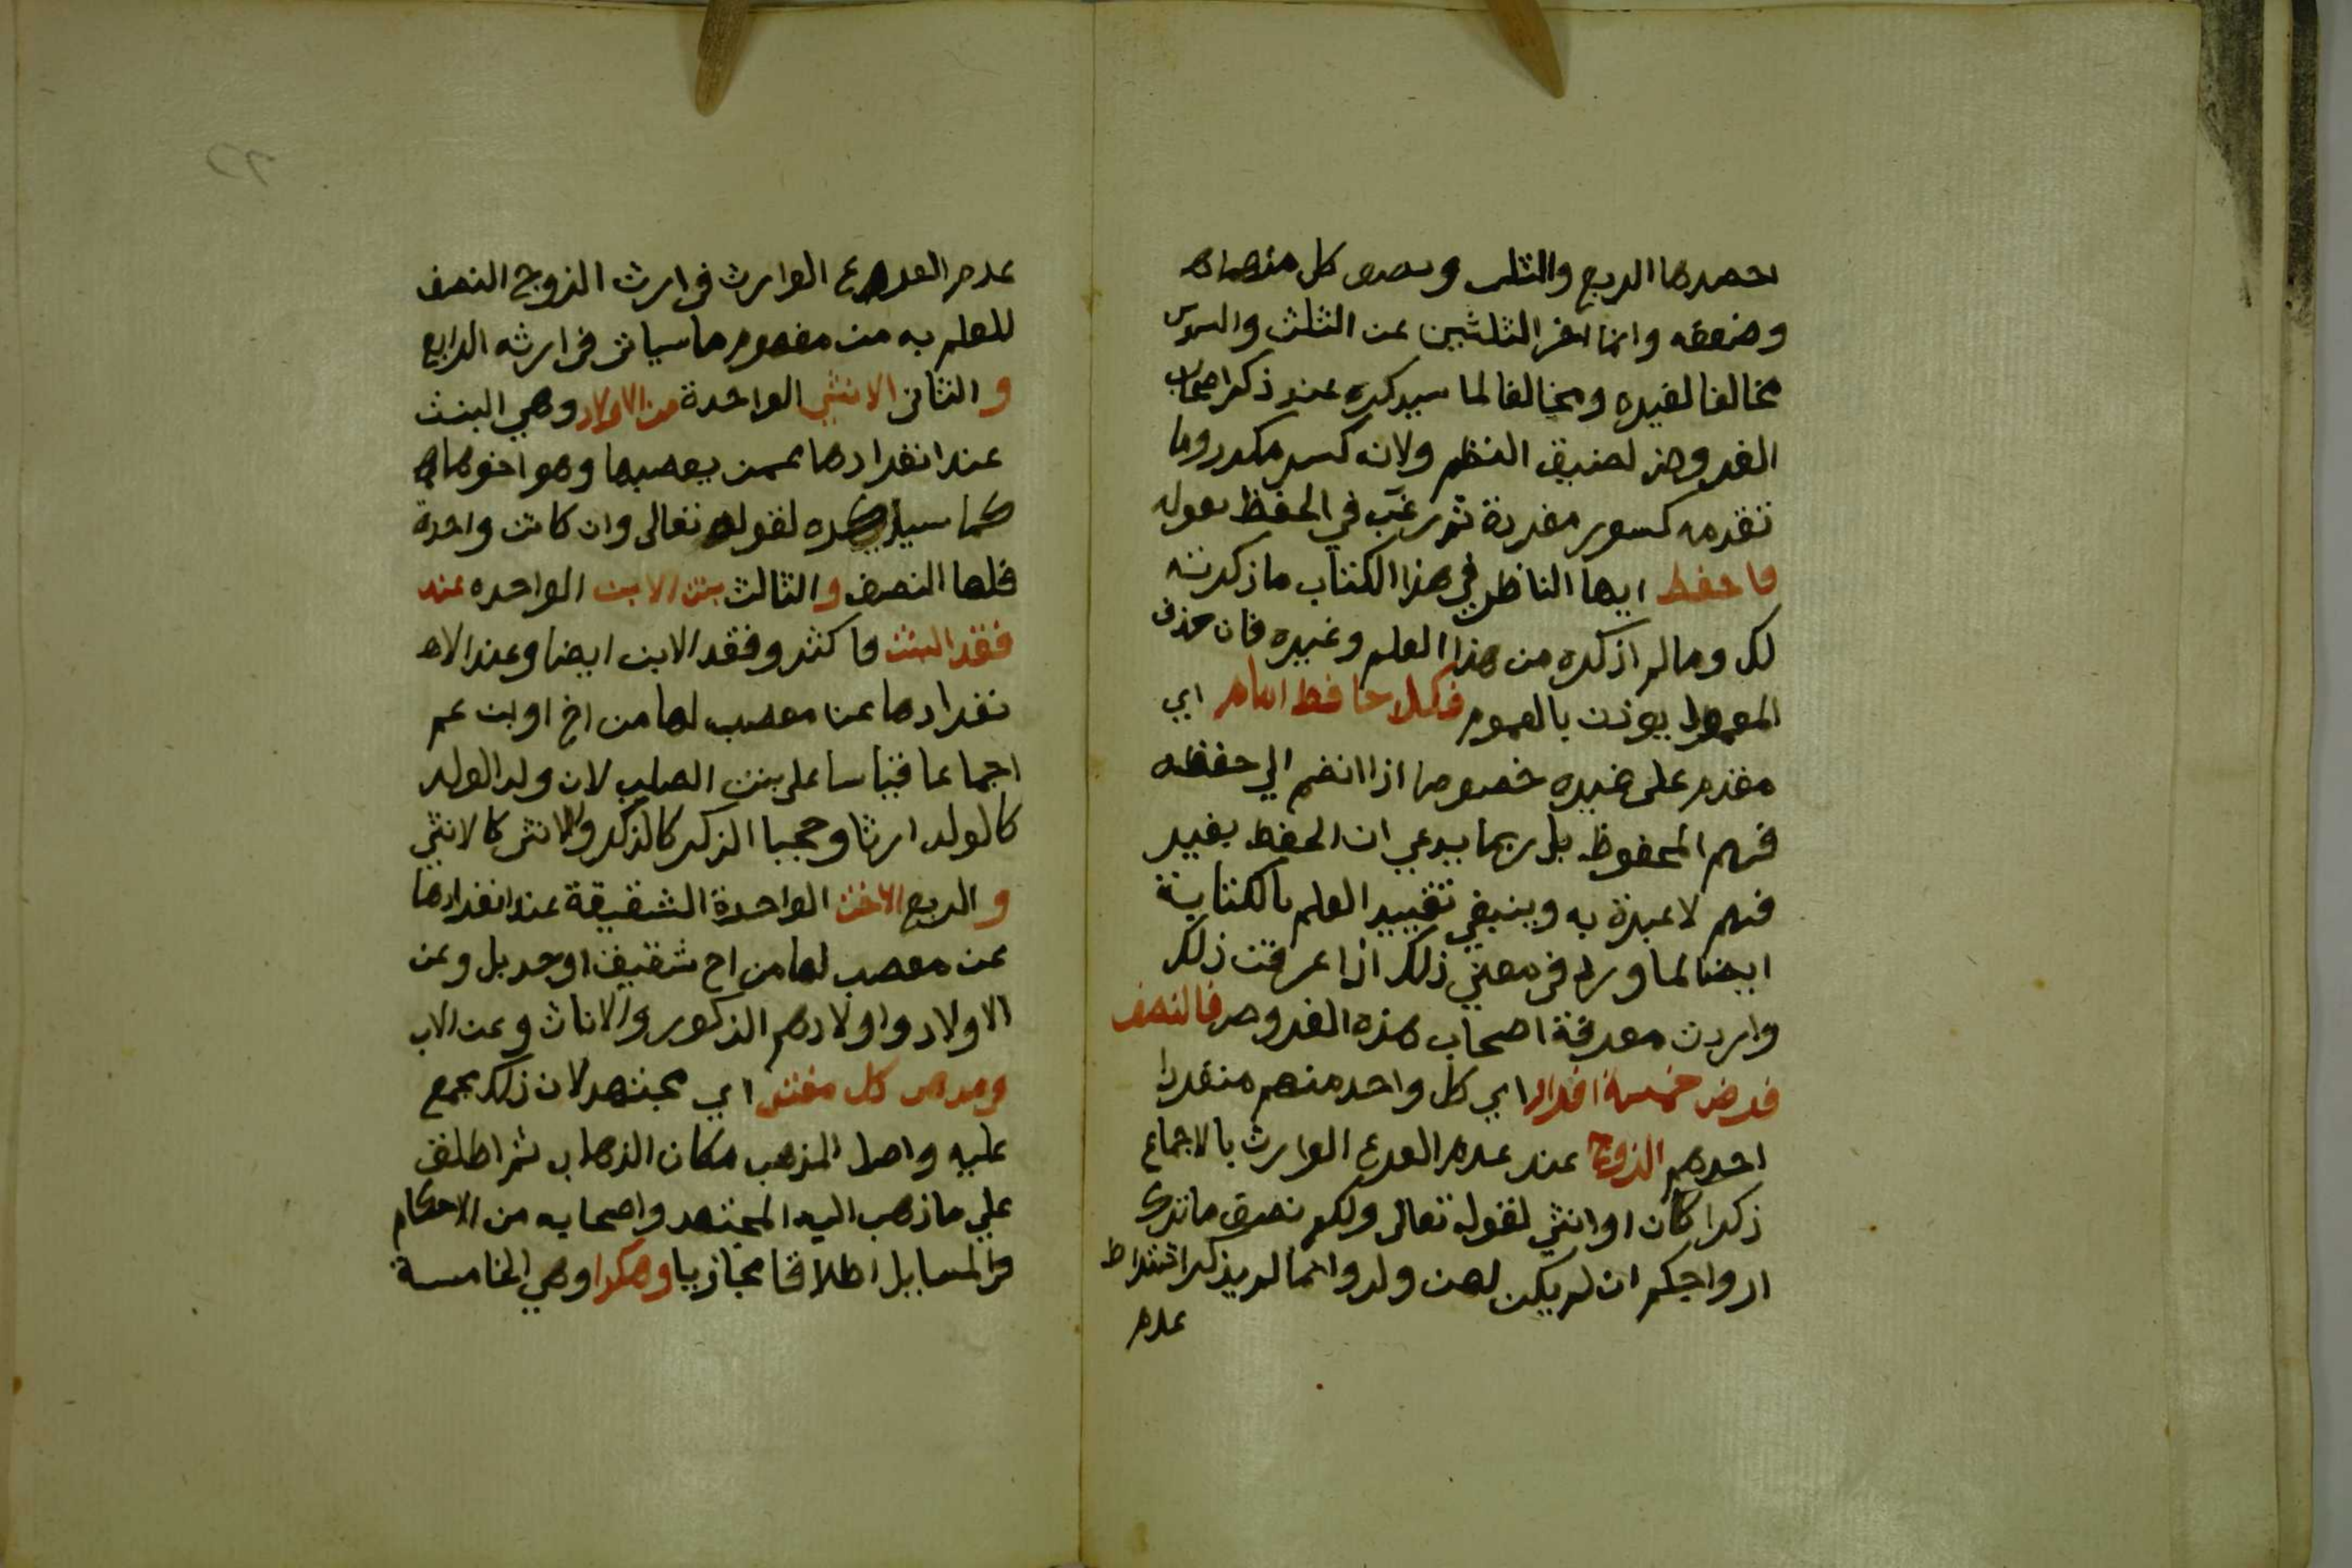 احصرها الربع والثلث ونصف كل منهما
وضعفه وانما اخر الثلثين عن الثلث والسدس
مخالفا لغيره ومخالفا لما سيذكره عند ذكر اصحاب
الفروض لضيق النظم ولانه كسر مكرر وما
تقدمه كسور مفردة ثم رغب في الحفظ بقوله
فاحفظ ايها الناظر في هذا الكتاب ما ذكرته
لك وما لم اذكره من هذا العلم وغيره فان حذف
المعمول يوذن بالعموم فكل حافظ امام اي
مقدم على غيره خصوصا اذا انضم الي حفظه
فهم المحفوظ بل ربما يدعي ان الحفظ بغير
فهم لا عبرة به وينبغي تقييد العلم بالكتابة
ايضا لما ورد في معنى ذلك اذا عرفت ذلك
واردت معرفة اصحاب هذه الفروض فالنصف
فرض خمسة افراد اي كل واحد منهم منفردا
احدهم الزوج عند عدم الفرع الوارث بالاجماع
ذكرا كان او انثى لقوله تعالى ولكم نصف ما ترك
ازواجكم ان لم يكن لهن ولد وانما لم يذكر اشتراط
عدم
عدم الفرع الوارث في ارث الزوج النصف
للعلم به من مفهوم ما سياتي في ارثه الرابع
والثاني الانثى الواحدة من الاولاد وهي البنت
عند انفرادها عمن يعصبها وهو اخوها
كما سيذكره لقوله تعالى وان كانت واحدة
فلها النصف والثالث بنت الابن الواحده عند
فقد البنت فاكثر وفقد الابن ايضا وعند الا
نفرادها عن معصب لها من اخ او بن عم
اجماعا قياسا على بنت الصلب لان ولد الولد
كالولد ارثا وحجبا الذكر كالذكر والانثى كالانثى
والربع الاخت الواحدة الشقيقة عند انفرادها
عن معصب لها من اخ شقيق او جد بل وعن
الاولاد واولادهم الذكور والاناث وعن الاب
ومذهب كل مفتي اي مجتهد لان ذلك مجمع
عليه واصل المذهب مكان الذهاب ثم اطلق
علي ما ذهب اليه المجتهد واصحابه من الاحكام
والمسايل اطلاقا مجازيا وهكذا وهي الخامسة